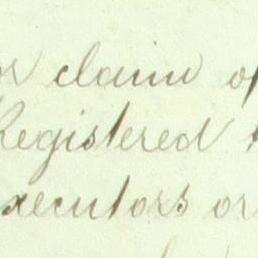 or claim of
Registered
executors or